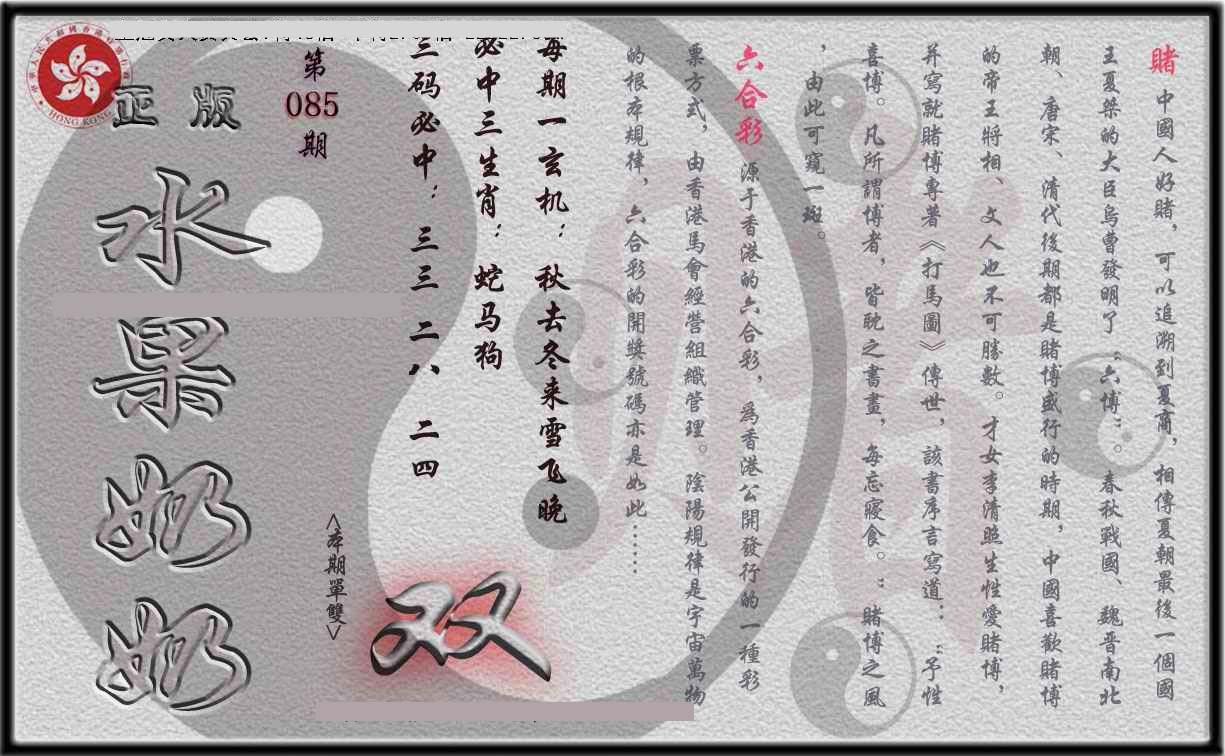 賭 中國人好賭，可以追溯到夏商，相傳夏朝最後一個國
王夏桀的大臣烏曹發明了“六博”。春秋戰國、魏晋南北
朝、唐宋、清代後期都是賭博盛行的時期，中國喜歡賭博
的帝王將相、文人也不可勝數。才女李清照生性愛賭博，
并寫就賭博專著《打馬圖》傳世，該書序言寫道：“予性
喜博。凡所謂博者，皆耽之晝書，每忘寢食。”賭博之風
，由此可窺一斑。
六合彩 源于香港的六合彩，爲香港公開發行的一種彩
票方式，由香港馬會經營組織管理。陰陽規律是宇宙萬物
的根本規律，六合彩的開獎號碼亦是如此……
每期一玄机：秋去冬来雪飞晚
必中三生肖：蛇马狗
三码必中：三三 二八 二四
第
085
期
<本期單雙>
双
正版
水果奶奶
HONG KONG